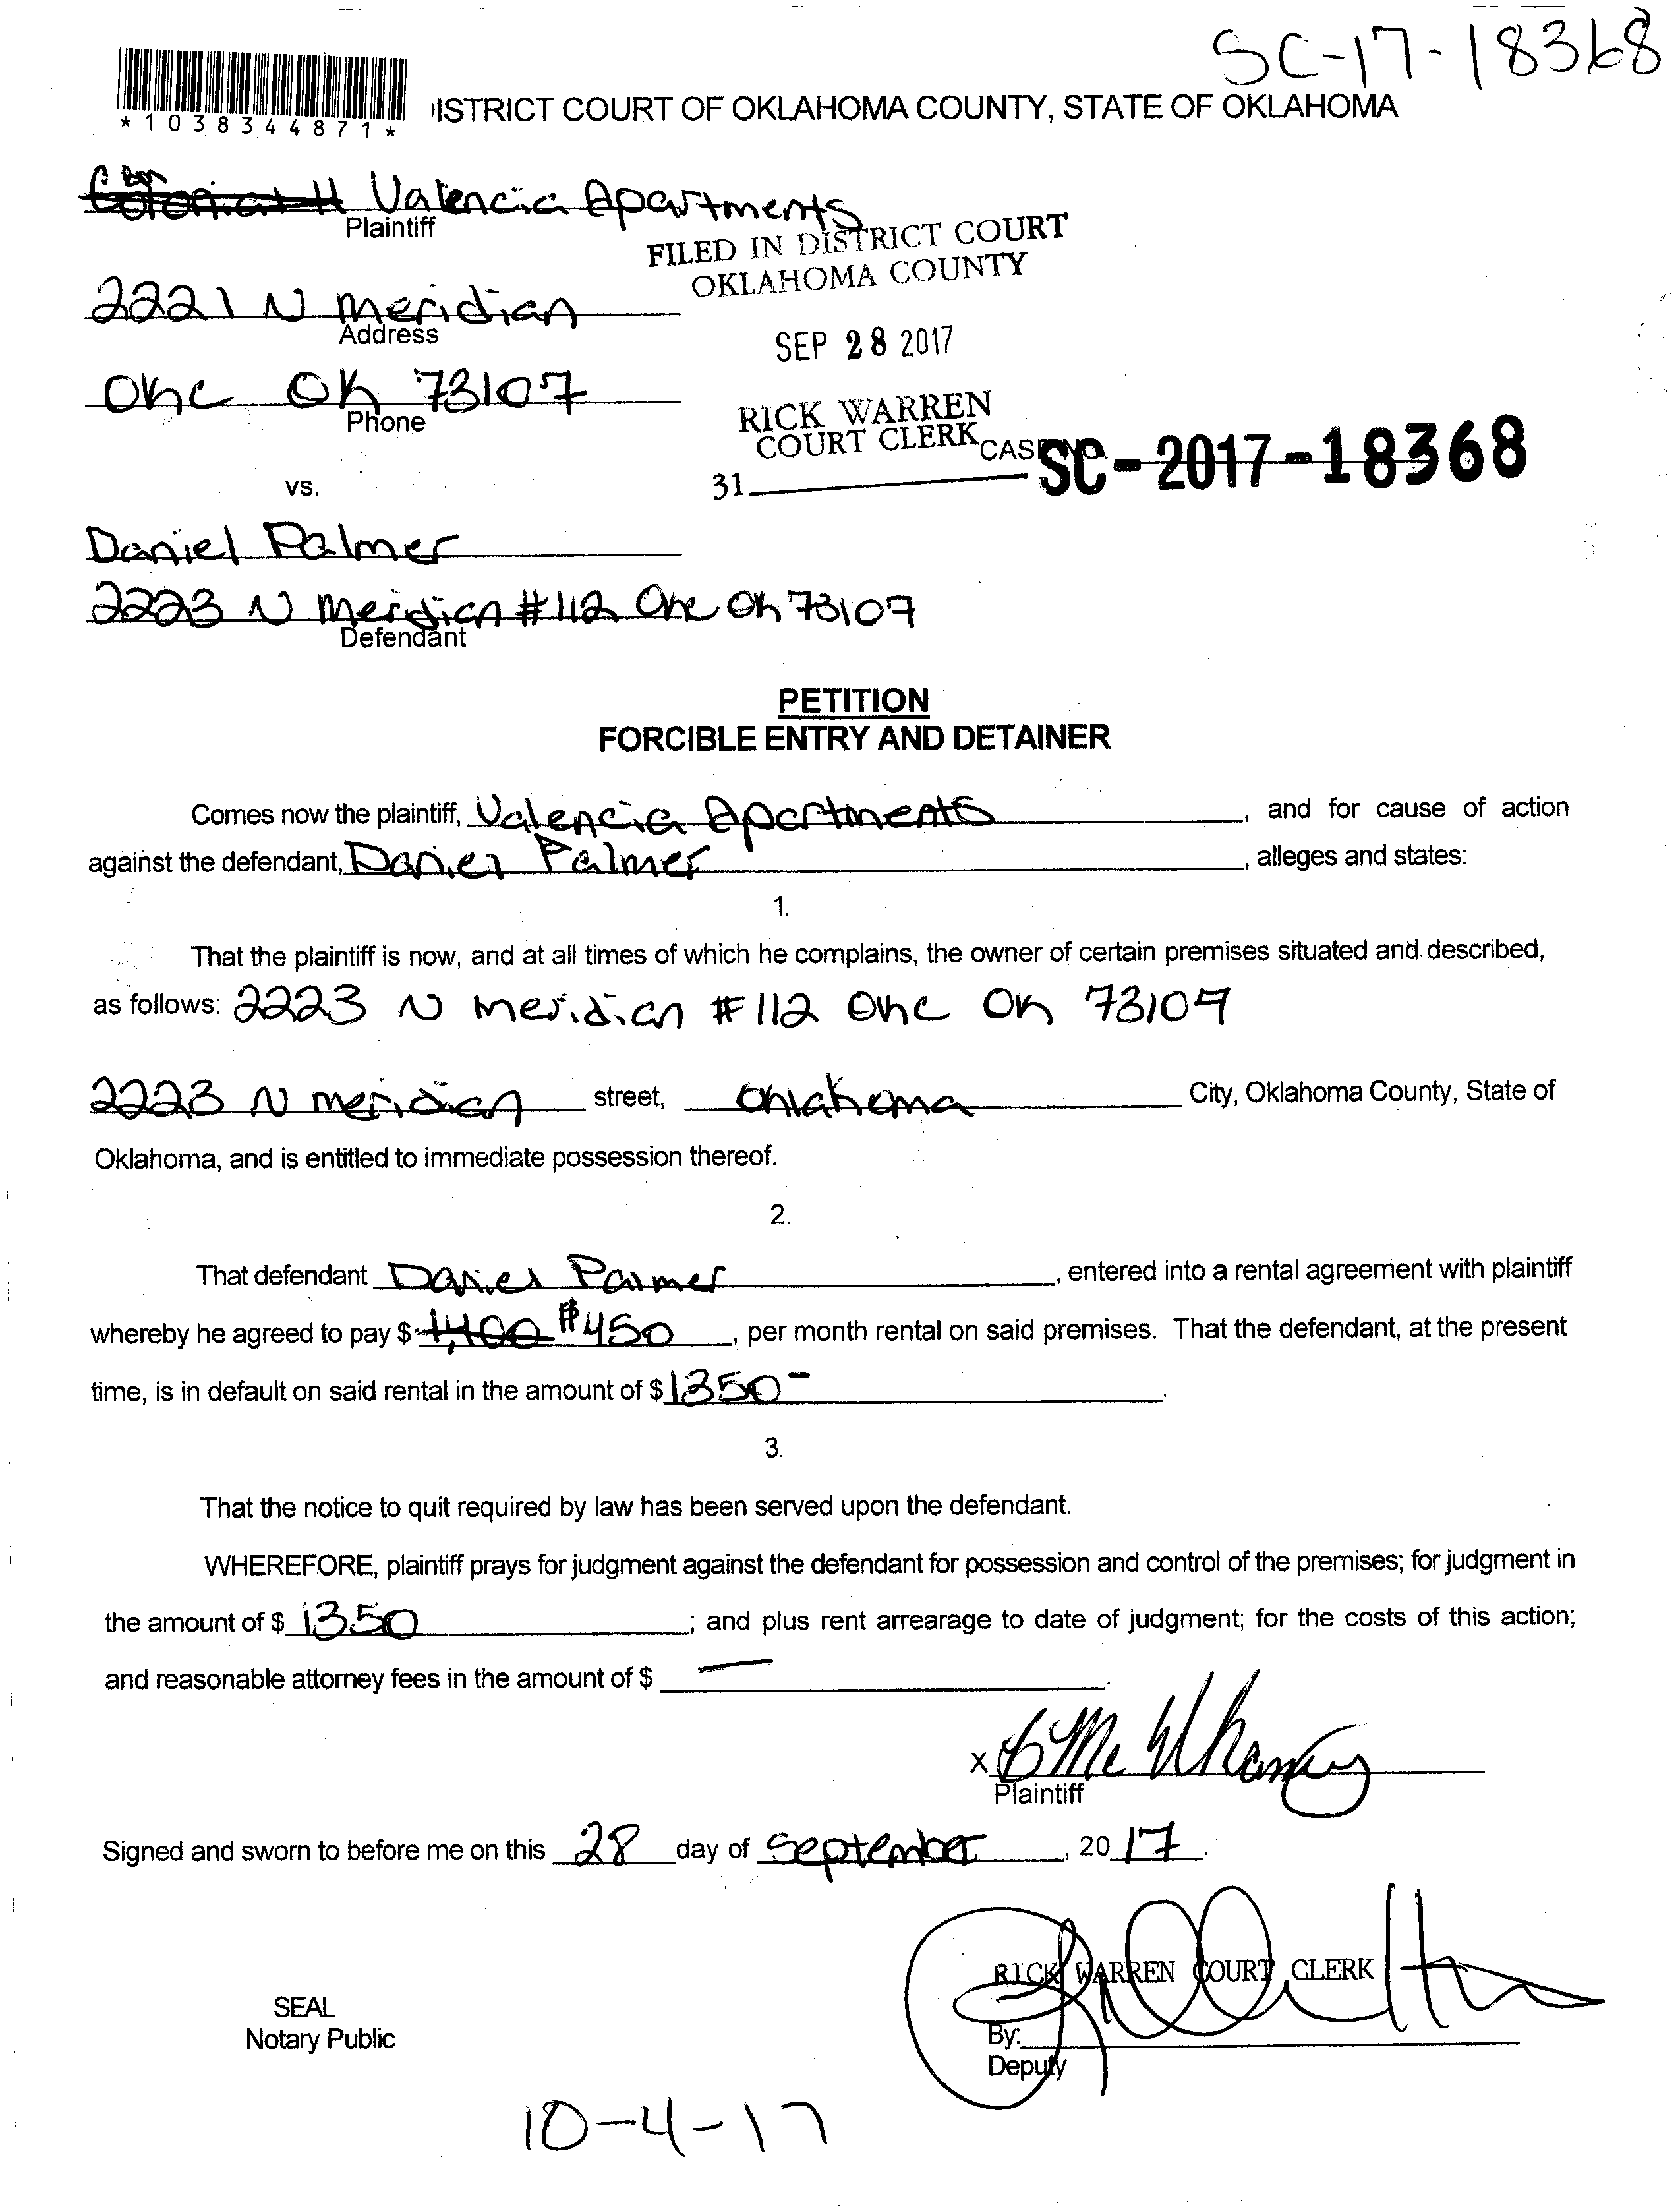 SC-17-18368
*1038344871*
ISTRICT COURT OF OKLAHOMA COUNTY, STATE OF OKLAHOMA
Valencia Apartments
Plaintiff
FILED IN DISTRICT COURT
OKLAHOMA COUNTY
2221 N Meridian
Address
SEP 28 2017
OKC OK 73107
Phone
RICK WARREN
COURT CLERK
CAS SC-2017-18368
31
vs.
Daniel Palmer
2223 N Meridian #112 OKC OK 73107
Defendant
PETITION
FORCIBLE ENTRY AND DETAINER
Comes now the plaintiff, Valencia Apartments, and for cause of action
against the defendant, Daniel Palmer, alleges and states:
1.
That the plaintiff is now, and at all times of which he complains, the owner of certain premises situated and described,
as follows: 2223 N Meridian #112 OKC OK 73107
2223 N Meridian street, Oklahoma City, Oklahoma County, State of
Oklahoma, and is entitled to immediate possession thereof.
2.
That defendant Daniel Palmer, entered into a rental agreement with plaintiff
whereby he agreed to pay $ 1,400 $450, per month rental on said premises. That the defendant, at the present
time, is in default on said rental in the amount of $ 1350-.
3.
That the notice to quit required by law has been served upon the defendant.
WHEREFORE, plaintiff prays for judgment against the defendant for possession and control of the premises; for judgment in
the amount of $ 1350; and plus rent arrearage to date of judgment; for the costs of this action;
and reasonable attorney fees in the amount of $ —.
x
Plaintiff
Signed and sworn to before me on this 28 day of September, 2017.
RICK WARREN COURT CLERK
SEAL
Notary Public
By:
Deputy
10-4-17